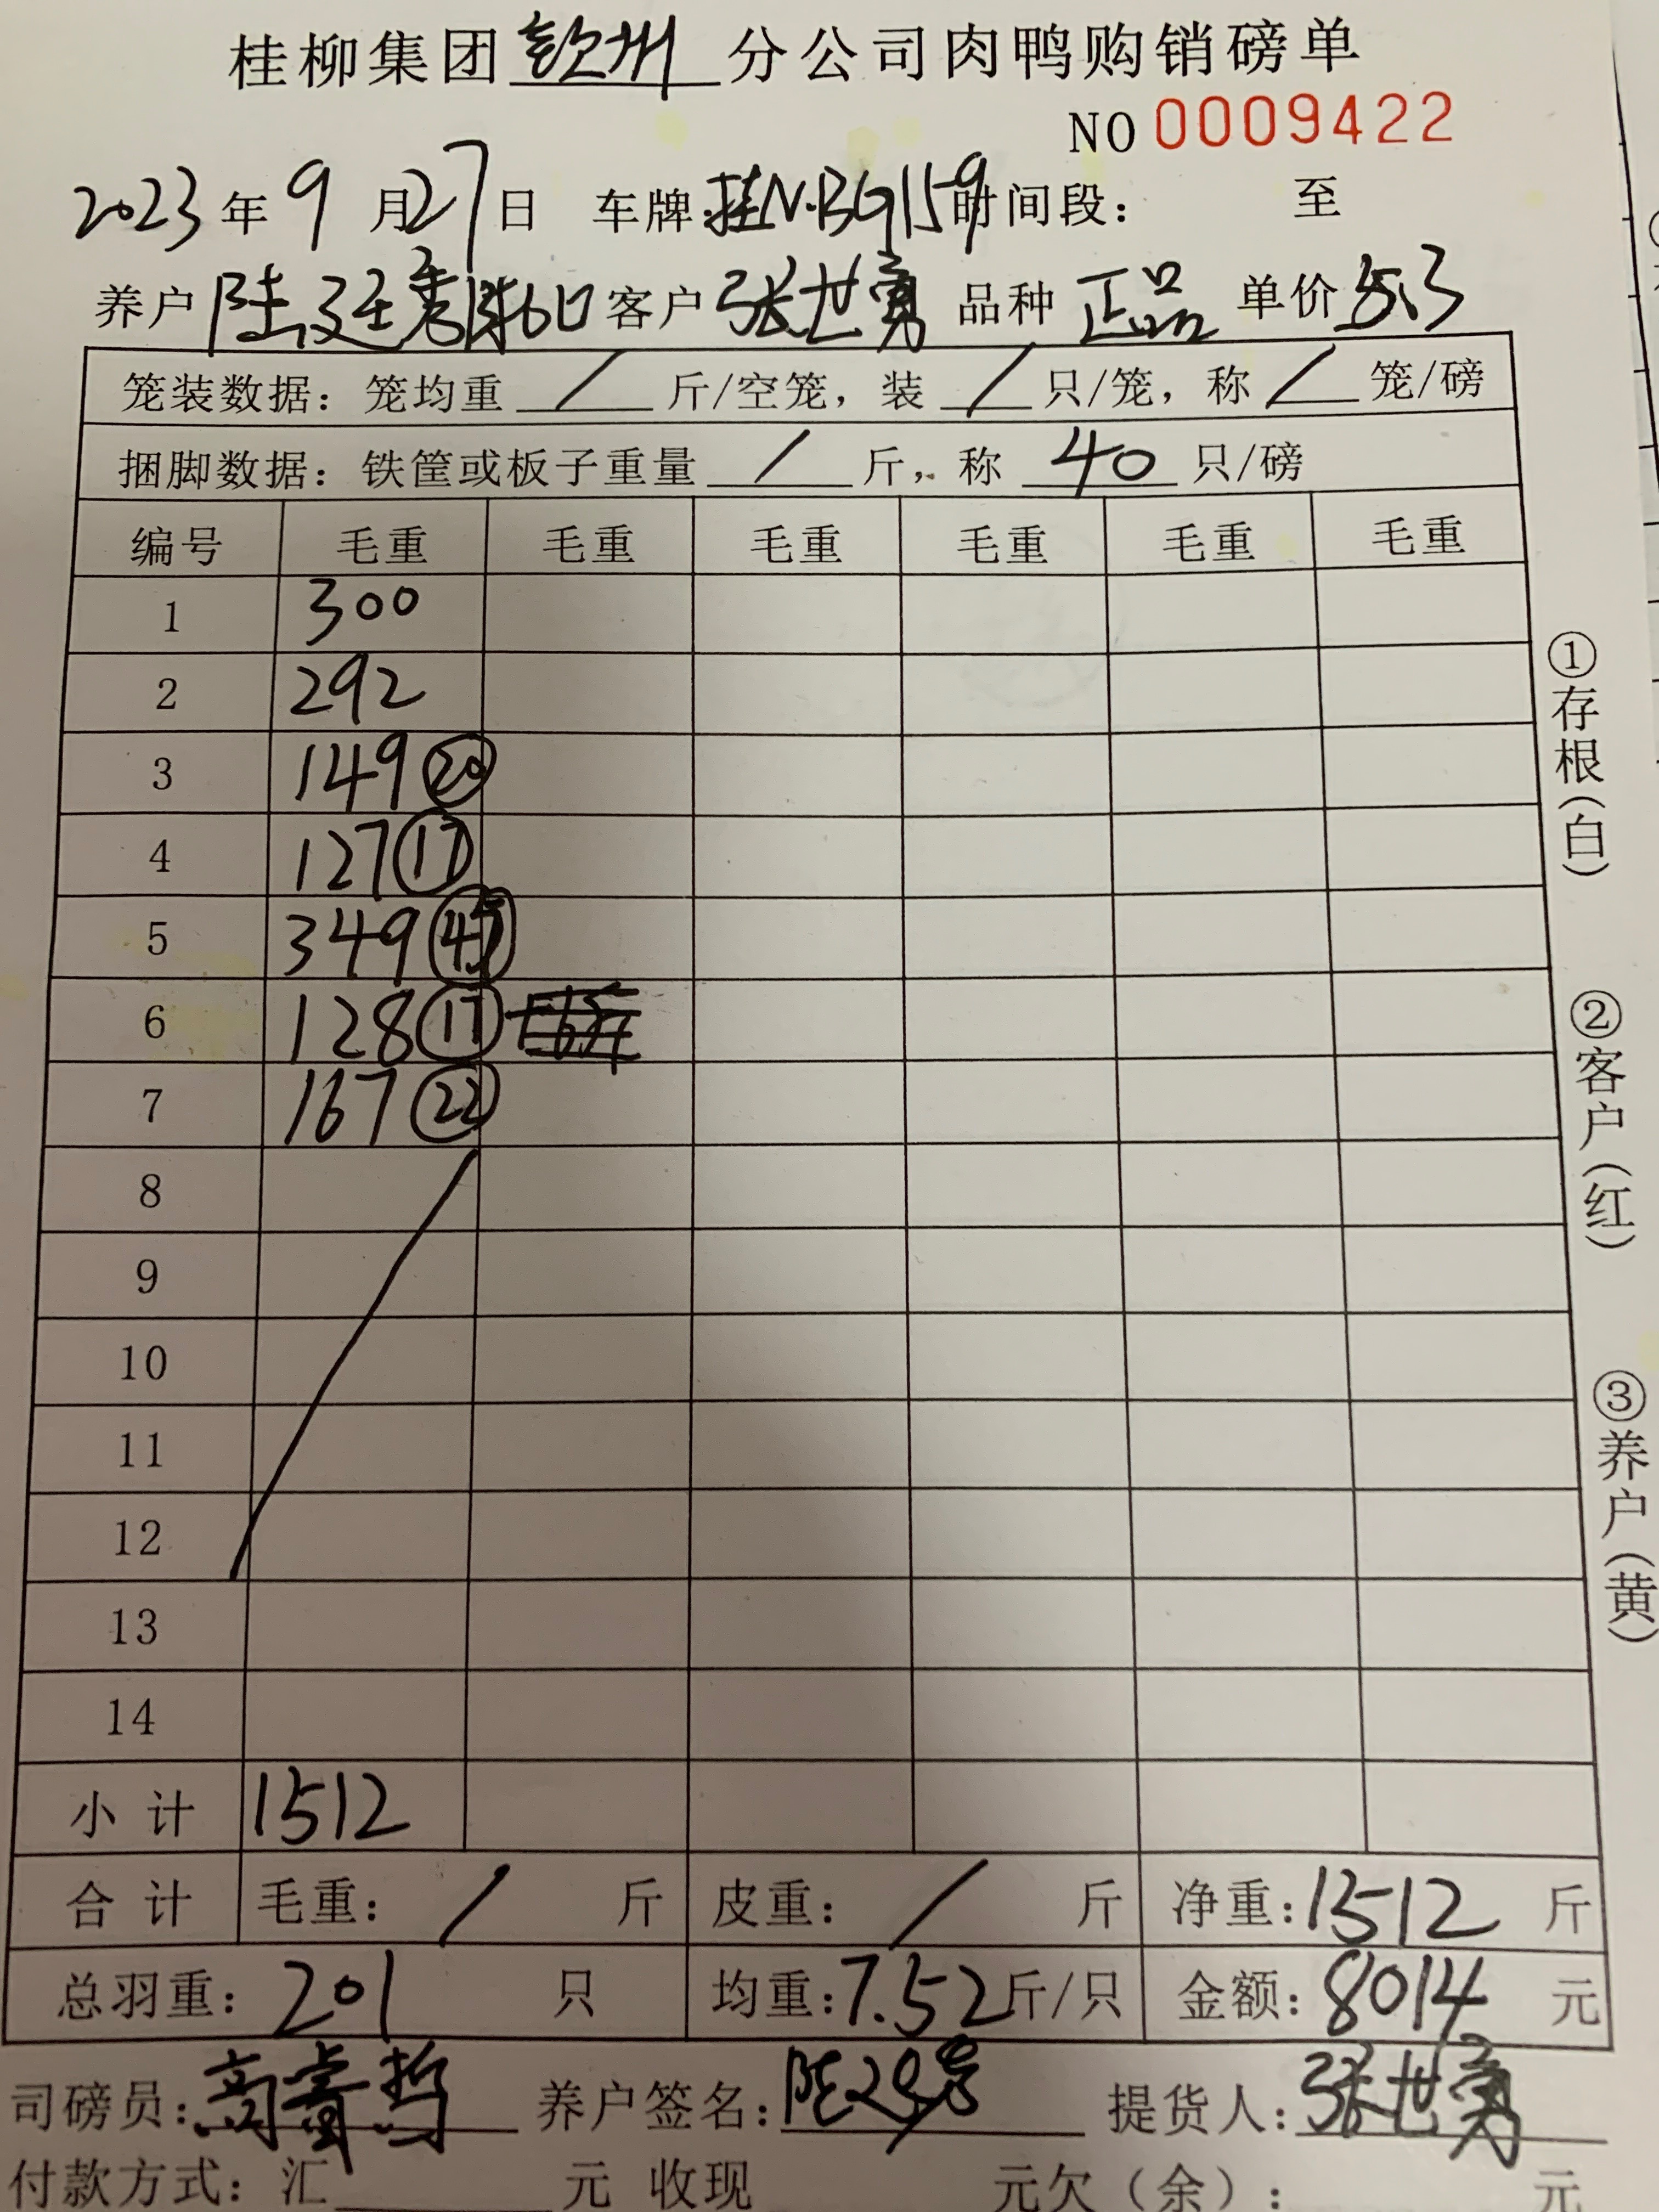 桂柳集团钦州分公司肉鸭购销磅单
NO 0009422
2023年9月27日 车牌:桂N·BG159 时间段: 至
养户 陆廷秀 客户 张世勇 品种 正品 单价 5.3
笼装数据:笼均重 / 斤/空笼,装 / 只/笼,称 / 笼/磅
捆脚数据:铁筐或板子重量 / 斤,称 40 只/磅
编号 毛重 毛重 毛重 毛重 毛重 毛重
1 300
2 292
3 149 ⑳
4 127 ⑰
5 349 ㊺
6 128 ⑰
7 167 ㉒
8
9
10
11
12
13
14
小计 1512
合计 毛重: / 斤 皮重: / 斤 净重:1512 斤
总羽重:201 只 均重:7.52斤/只 金额:8014 元
司磅员:高睿哲 养户签名: 提货人:张世勇
付款方式:汇 元 收现 元欠(余): 元
①存根(白)
②客户(红)
③养户(黄)